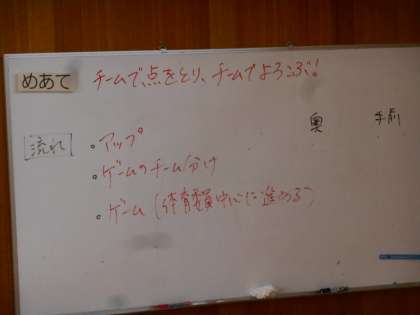 めあて チームで、点をとり、チームでよろこぶ!
奥 手前
流れ
。アップ
。ゲームのチーム分け
。ゲーム(体育委員中心に進める)